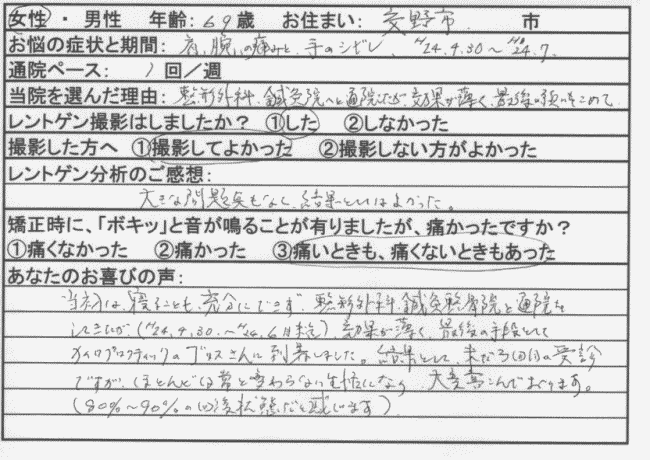 女性 ・ 男性　年齢：69歳　お住まい：交野市　市
お悩の症状と期間：肩、腕、の痛みと、手のシビレ、H24.4.30～H24.7.
通院ペース：1回／週
当院を選んだ理由：整形外科、鍼灸院へと通院したが、効果が薄く、最後の
レントゲン撮影はしましたか？　①した　②しなかった
撮影した方へ　①撮影してよかった　②撮影しない方がよかった
レントゲン分析のご感想：
大きな問題点もなく、結果としてはよかった。
矯正時に、「ボキッ」と音が鳴ることが有りましたが、痛かったですか？
①痛くなかった　②痛かった　③痛いときも、痛くないときもあった
あなたのお喜びの声：
当初は、寝ることも、充分にできず、整形外科、鍼灸整骨院と通院を
してきたが（H24.4.30.～H24.6月末迄）効果が薄く、最後の手段として
カイロプラクティックの さんに到着しました。結果として、未だ 回の受診
ですが、ほとんど日常と変わらない生活になり、大変喜こんでおります。
（80％～90％の回復状態だと感じます）